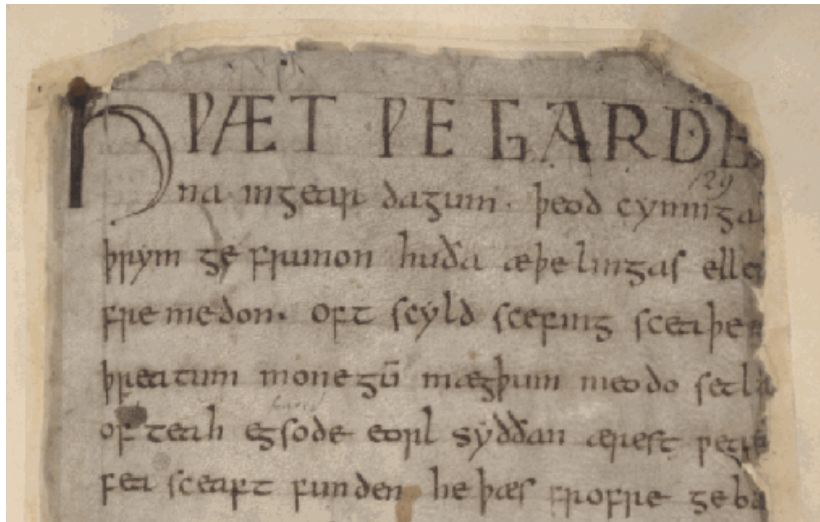 HǷÆT ǷE GARDE
na ingear dagum. þeod cyninga
þrym ge frunon huða æþelingas ellen
fremedon. oft scyld scefing sceaþen
þreatum monegū mægþum meodo setla
ofteah egsode eorl syððan ærest ƿear
fea sceaft funden he þæs frofre geba
129